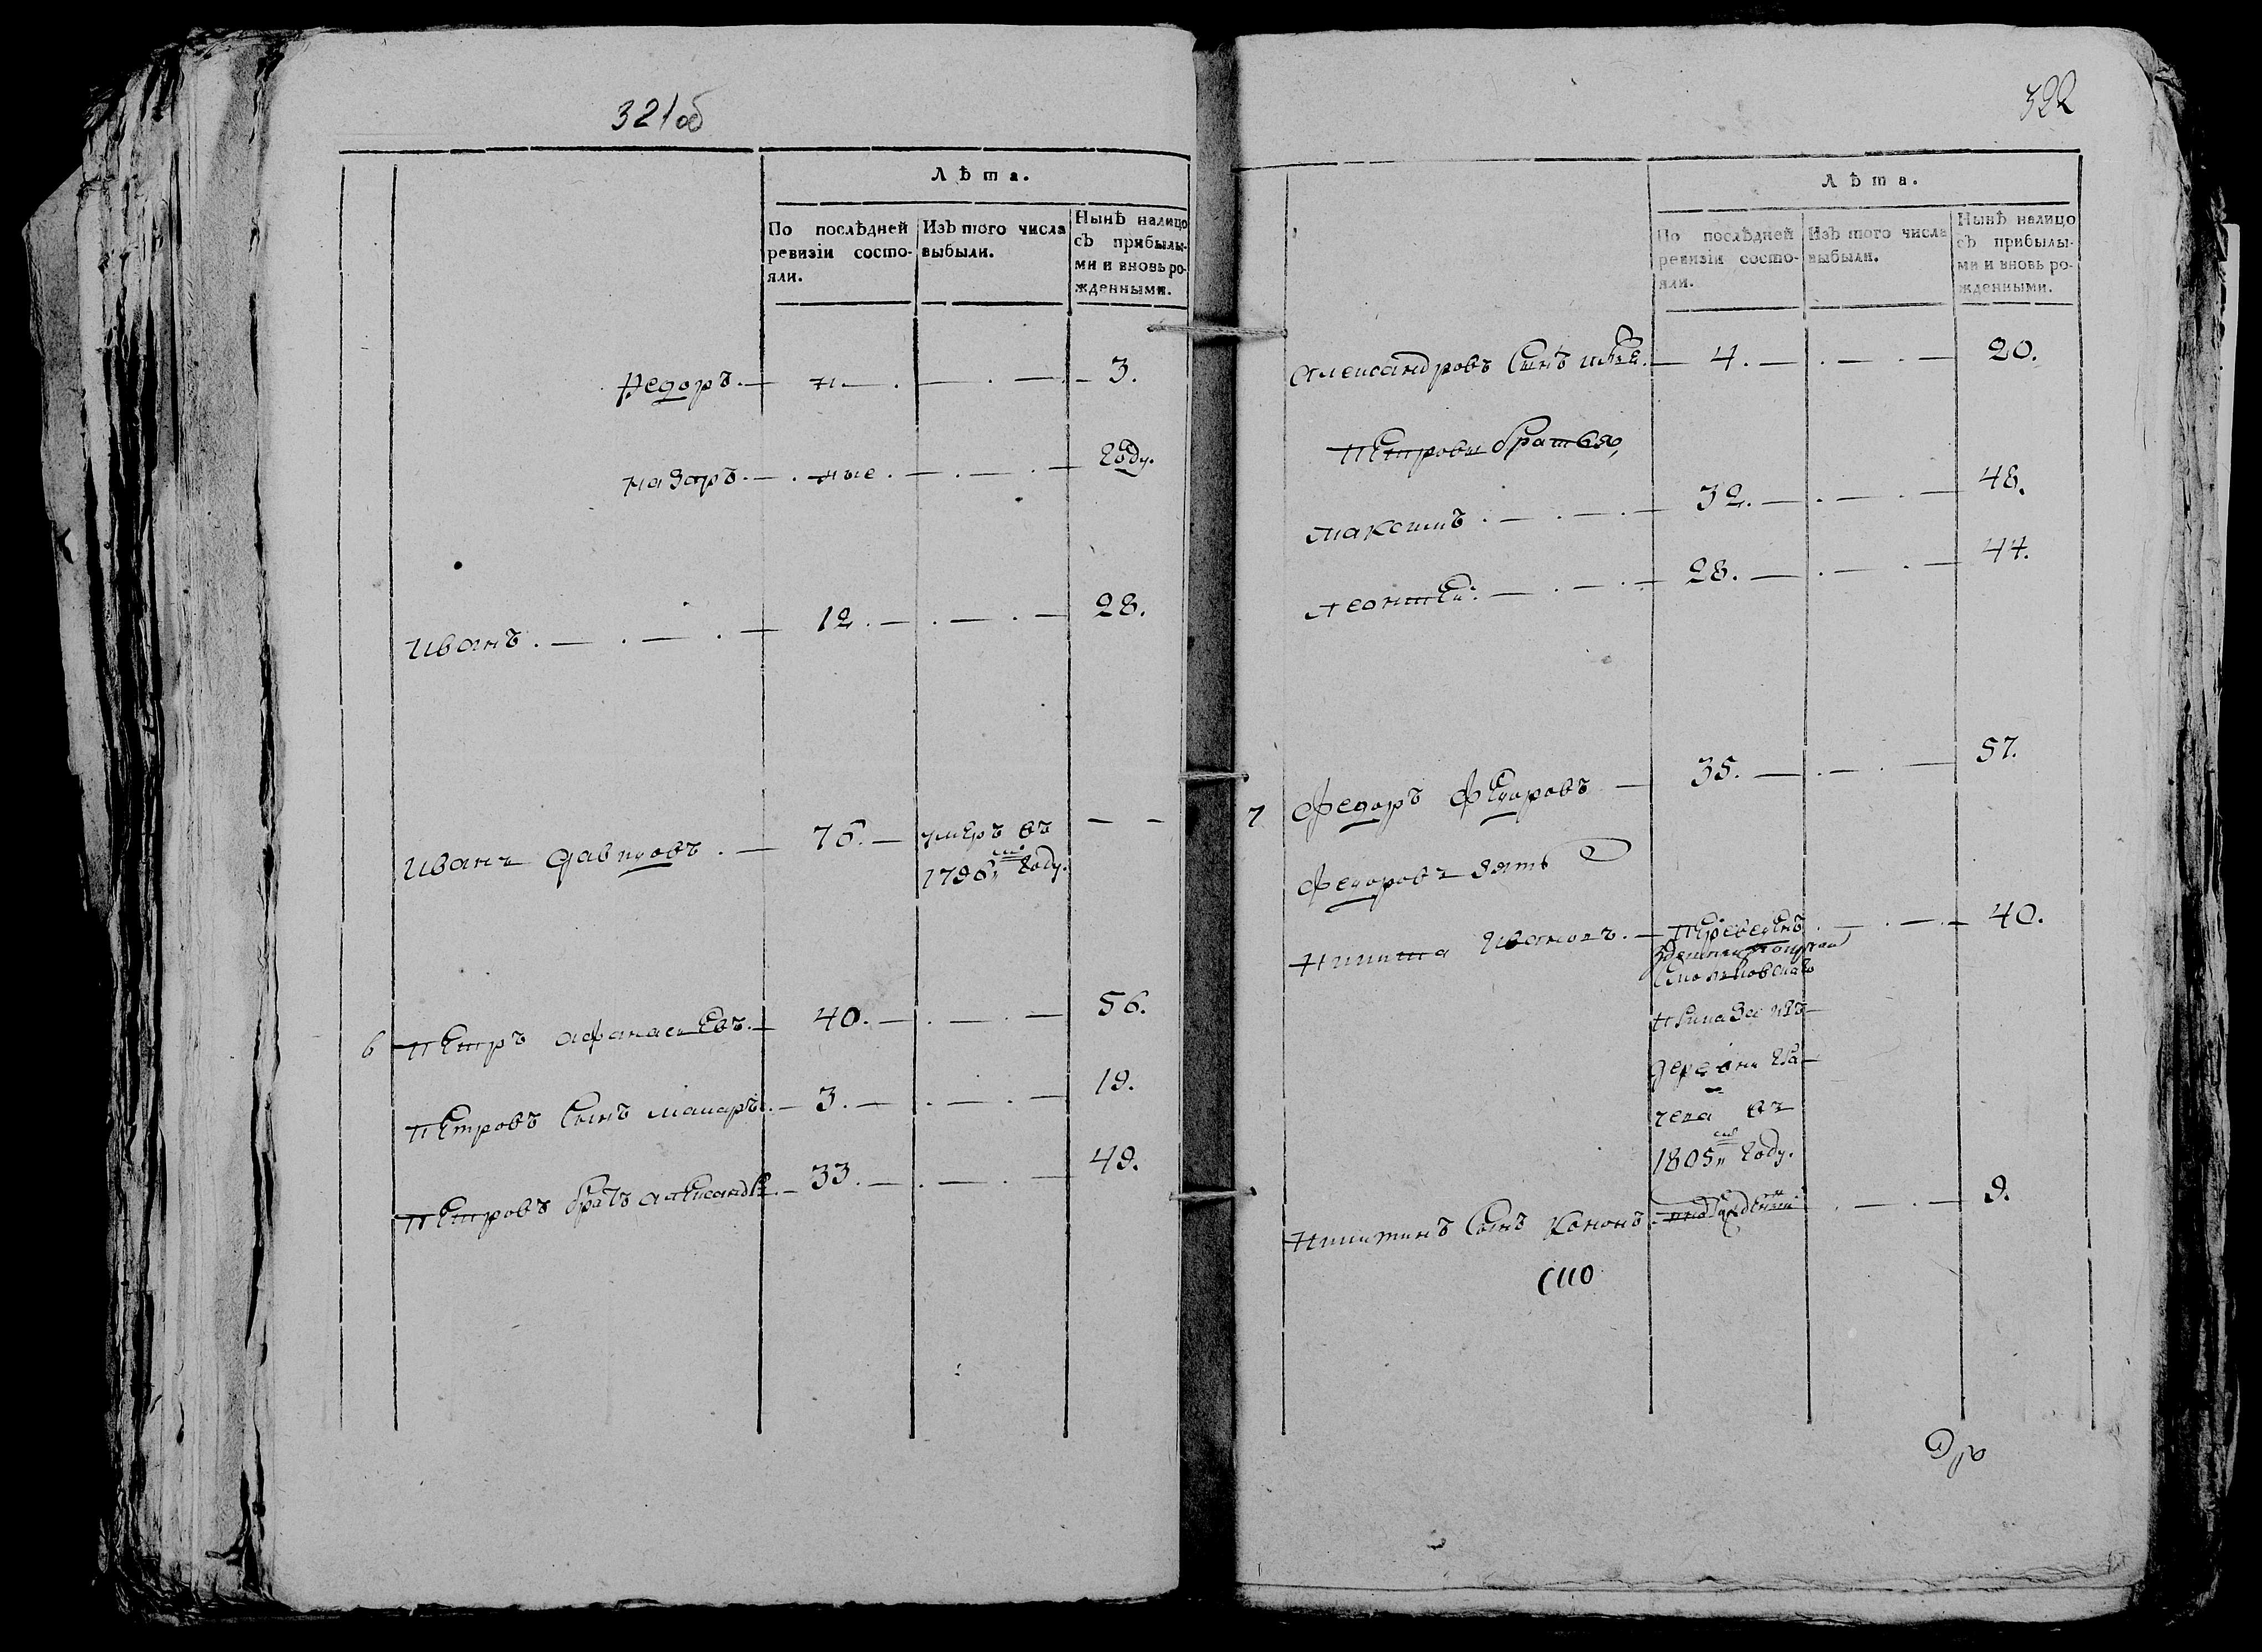 321об
Лѣта.
По послѣдней ревизіи состояли.
Изъ того числа выбыли.
Нынѣ налицо съ прибылыми и вновь рожденными.
Федоръ. н. 3.
Назаръ. ные. 2 году.
Иванъ. 12. 28.
Иванъ Давыдовъ. 76. умеръ въ
1796м году.
6 Петръ Афанасьевъ. 40. 56.
Петровъ сынъ Макаръ. 3. 19.
Петровъ братъ Александръ. 33. 49.
322
Лѣта.
По послѣдней ревизіи состояли.
Изъ того числа выбыли.
Нынѣ налицо съ прибылыми и вновь рожденными.
Александровъ сынъ 4. 20.
Петровы братья,
Максимъ. 32. 48.
Леонтей. 28. 44.
7 Федоръ Федоровъ 35. 57.
Федоровъ зять
Никита Ивановъ. Переведенъ 40.
изъ
деревни
въ
1805м году.
Никитинъ сынъ Кононъ. 9.